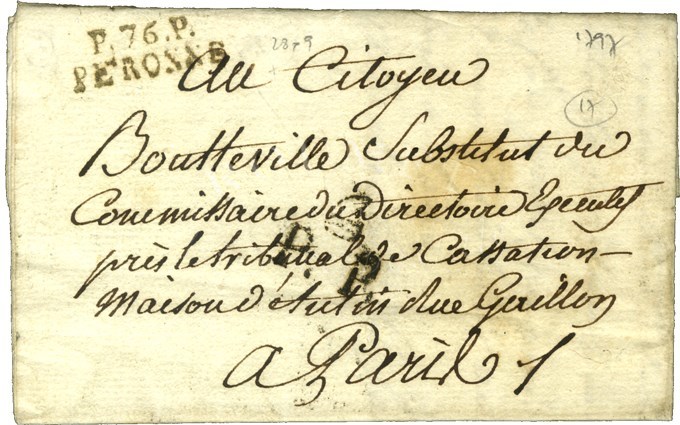 P.76.P.
PERONNE
28 9
1797
17
Au Citoyen
Boutteville Substitut du
Commissaire du Directoire Executif
près le tribunal de Cassation
Maison d'Autin Rue Gaillon
a Paris
P. P.